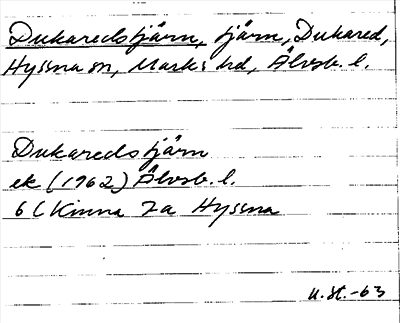 Dukaredstjärn, tjärn, Dukared,
Hyssna sn, Marks hd, Älvsb. l.
Dukaredstjärn
ek (1962) Älvsb. l.
6 C Kinna 7a Hyssna
U.St.-63